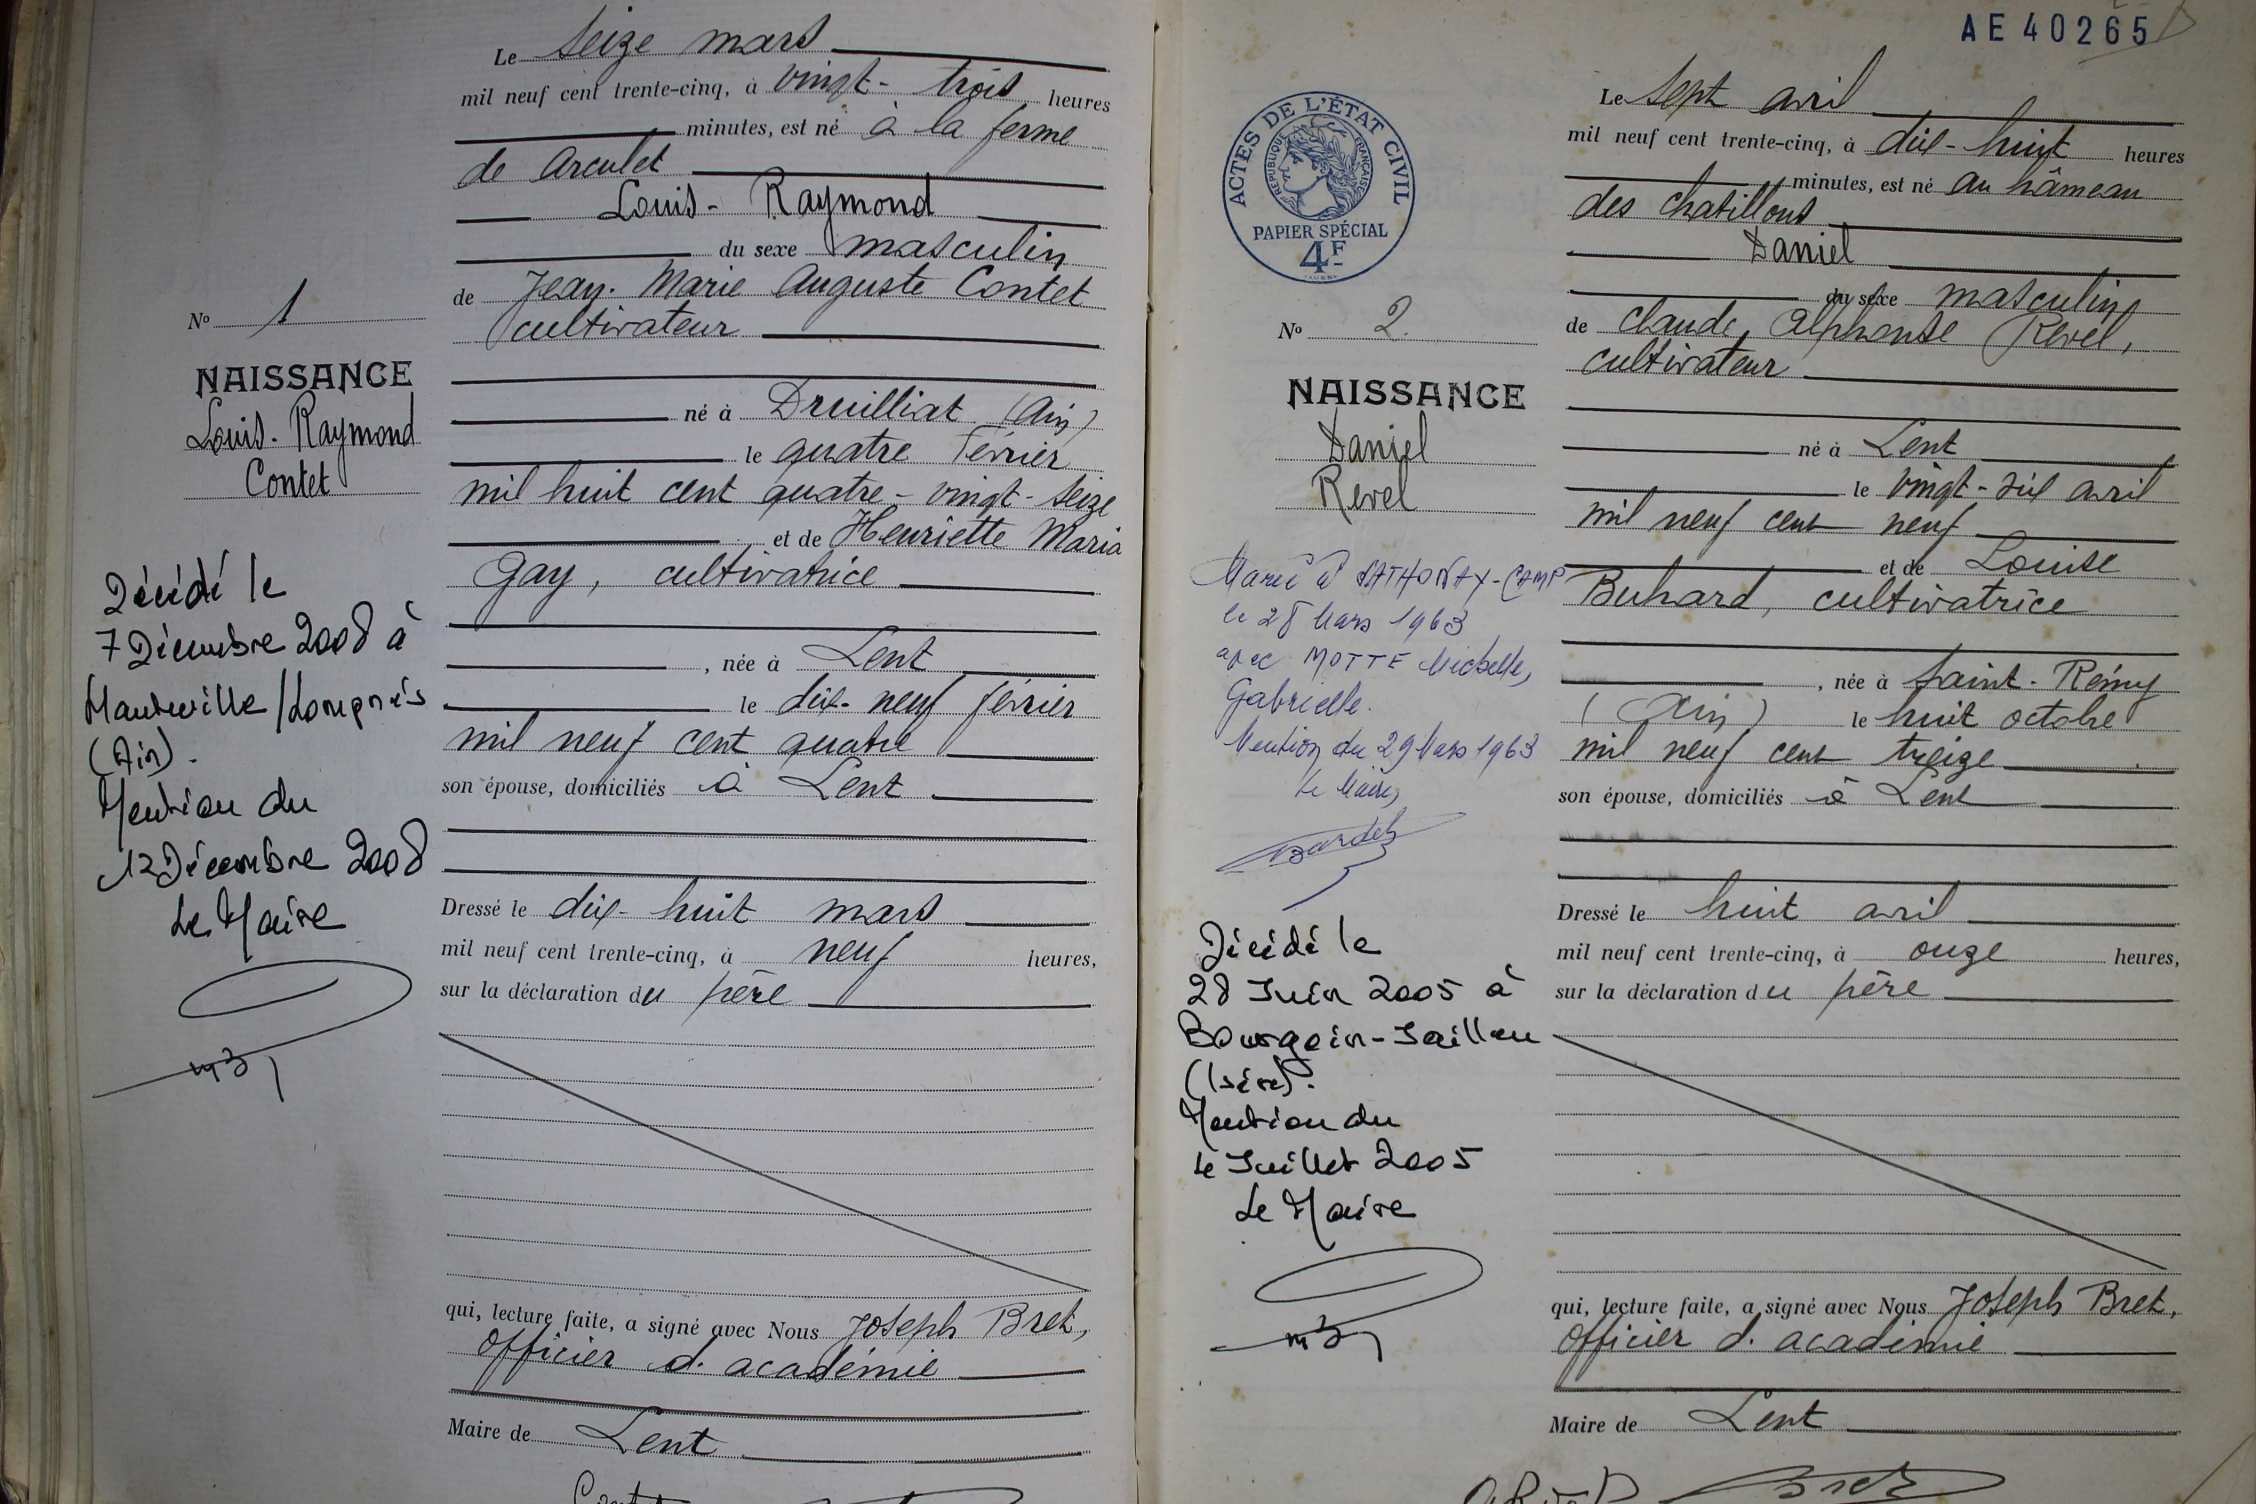 Le seize mars
mil neuf cent trente-cinq, à vingt-trois heures
minutes, est né à la ferme
de Arculet
Louis-Raymond
du sexe masculin
de Jean-Marie Auguste Contet
cultivateur
né à Druilliat (Ain)
le quatre février
mil huit cent quatre-vingt-seize
et de Henriette Maria
Gay, cultivatrice
, née à Lent
le dix-neuf février
mil neuf cent quatre
son épouse, domiciliés à Lent
Dressé le dix-huit mars
mil neuf cent trente-cinq, à neuf heures,
sur la déclaration du père
qui, lecture faite, a signé avec Nous Joseph Bret,
officier d. académie
Maire de Lent
No 1
NAISSANCE
Louis-Raymond
Contet
Décédé le
7 Décembre 2008 à
Hauteville/Lompnès
(Ain).
Mention du
12 Décembre 2008
Le Maire
AE 40265
ACTES DE L'ÉTAT CIVIL
RÉPUBLIQUE FRANÇAISE
PAPIER SPÉCIAL
4F
Le sept avril
mil neuf cent trente-cinq, à dix-huit heures
minutes, est né au hâmeau
des chatillons
Daniel
du sexe masculin
de Claude, Alphonse Revel,
cultivateur
né à Lent
le vingt-six avril
mil neuf cent neuf
et de Louise
Buhard, cultivatrice
, née à Saint-Rémy
(Ain) le huit octobre
mil neuf cent treize
son épouse, domiciliés à Lent
Dressé le huit avril
mil neuf cent trente-cinq, à onze heures,
sur la déclaration du père
qui, lecture faite, a signé avec Nous Joseph Bret,
officier d. académie
Maire de Lent
No 2.
NAISSANCE
Daniel
Revel
Marié à SATHONAY-CAMP
le 28 Mars 1963
avec MOTTE Michelle,
Gabrielle.
Mention du 29 Mars 1963
Le Maire,
Décédé le
28 Juin 2005 à
Bourgoin-Jailleu
(Isère).
Mention du
4 Juillet 2005
Le Maire
Bret